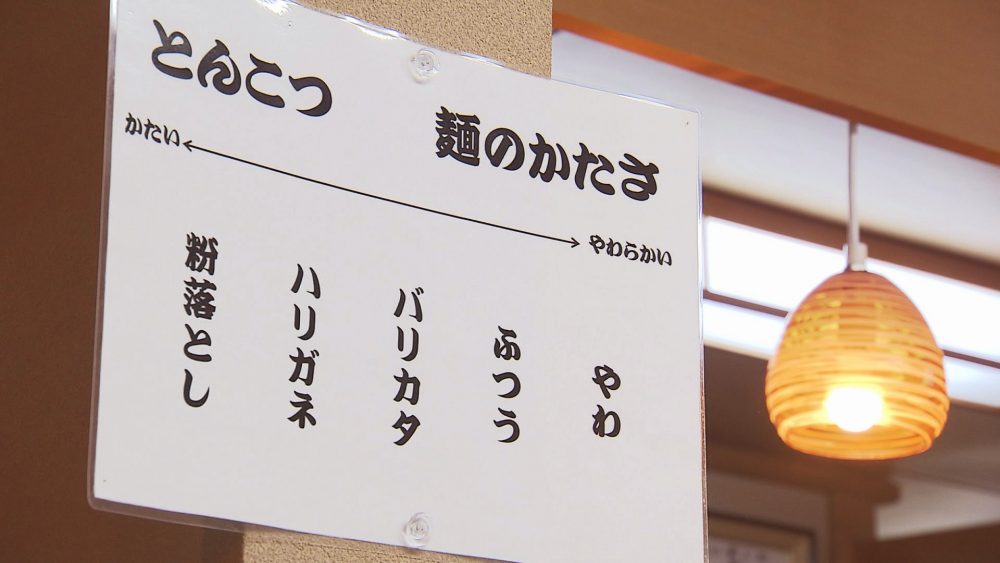 とんこつ
麺のかたさ
かたい
やわらかい
粉落とし
ハリガネ
バリカタ
ふつう
やわ